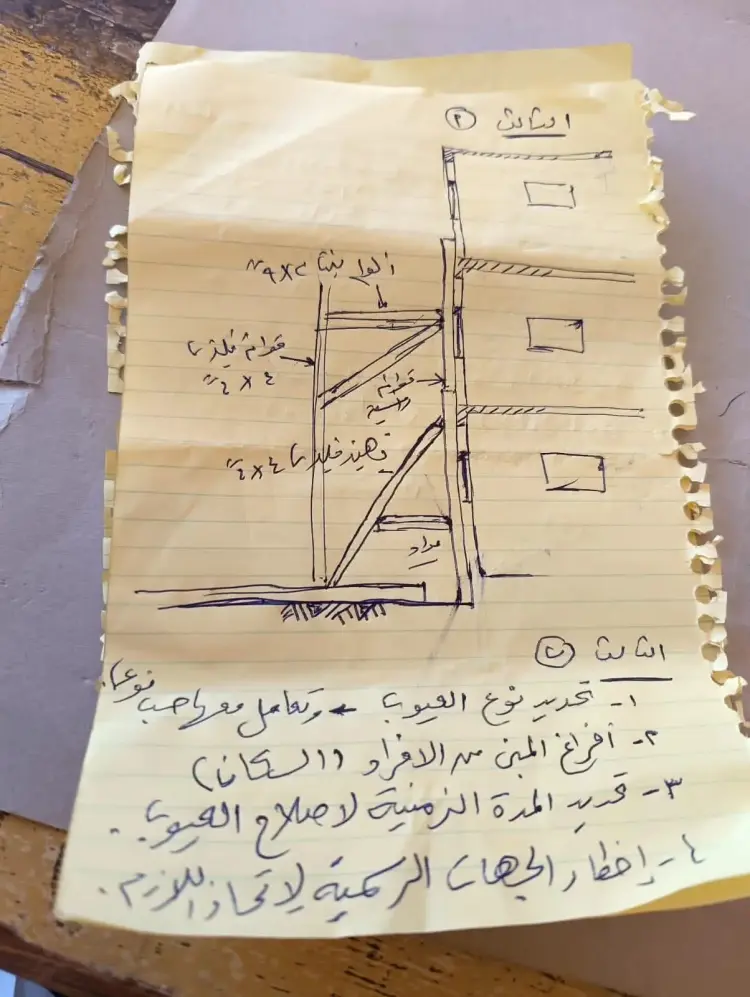 الثالث ٢
ألواح بنتا ٢×٩"
قوائم فليرى
٤×٤"
قوائم
رأسية
نهيز فليرى ٤×٤"
مداد
الثالث ب
١- تحديد نوع العيوب ← وتعامل معها حسب نوعها.
٢- أفراغ المبنى من الافراد (السكان)
٣- تحديد المدة الزمنية لاصلاح العيوب.
٤- إخطار الجهات الرسمية لاتخاذ اللازم.